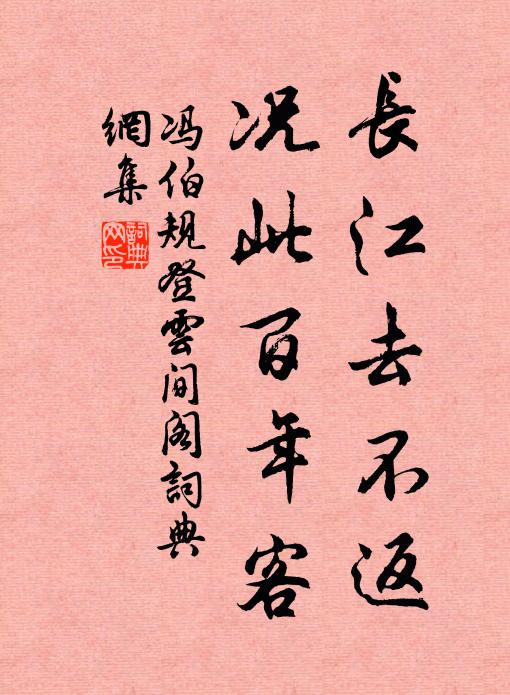 長江去不返
况此百年客
冯伯规登雲间阁詞典
網集
詞典
网印